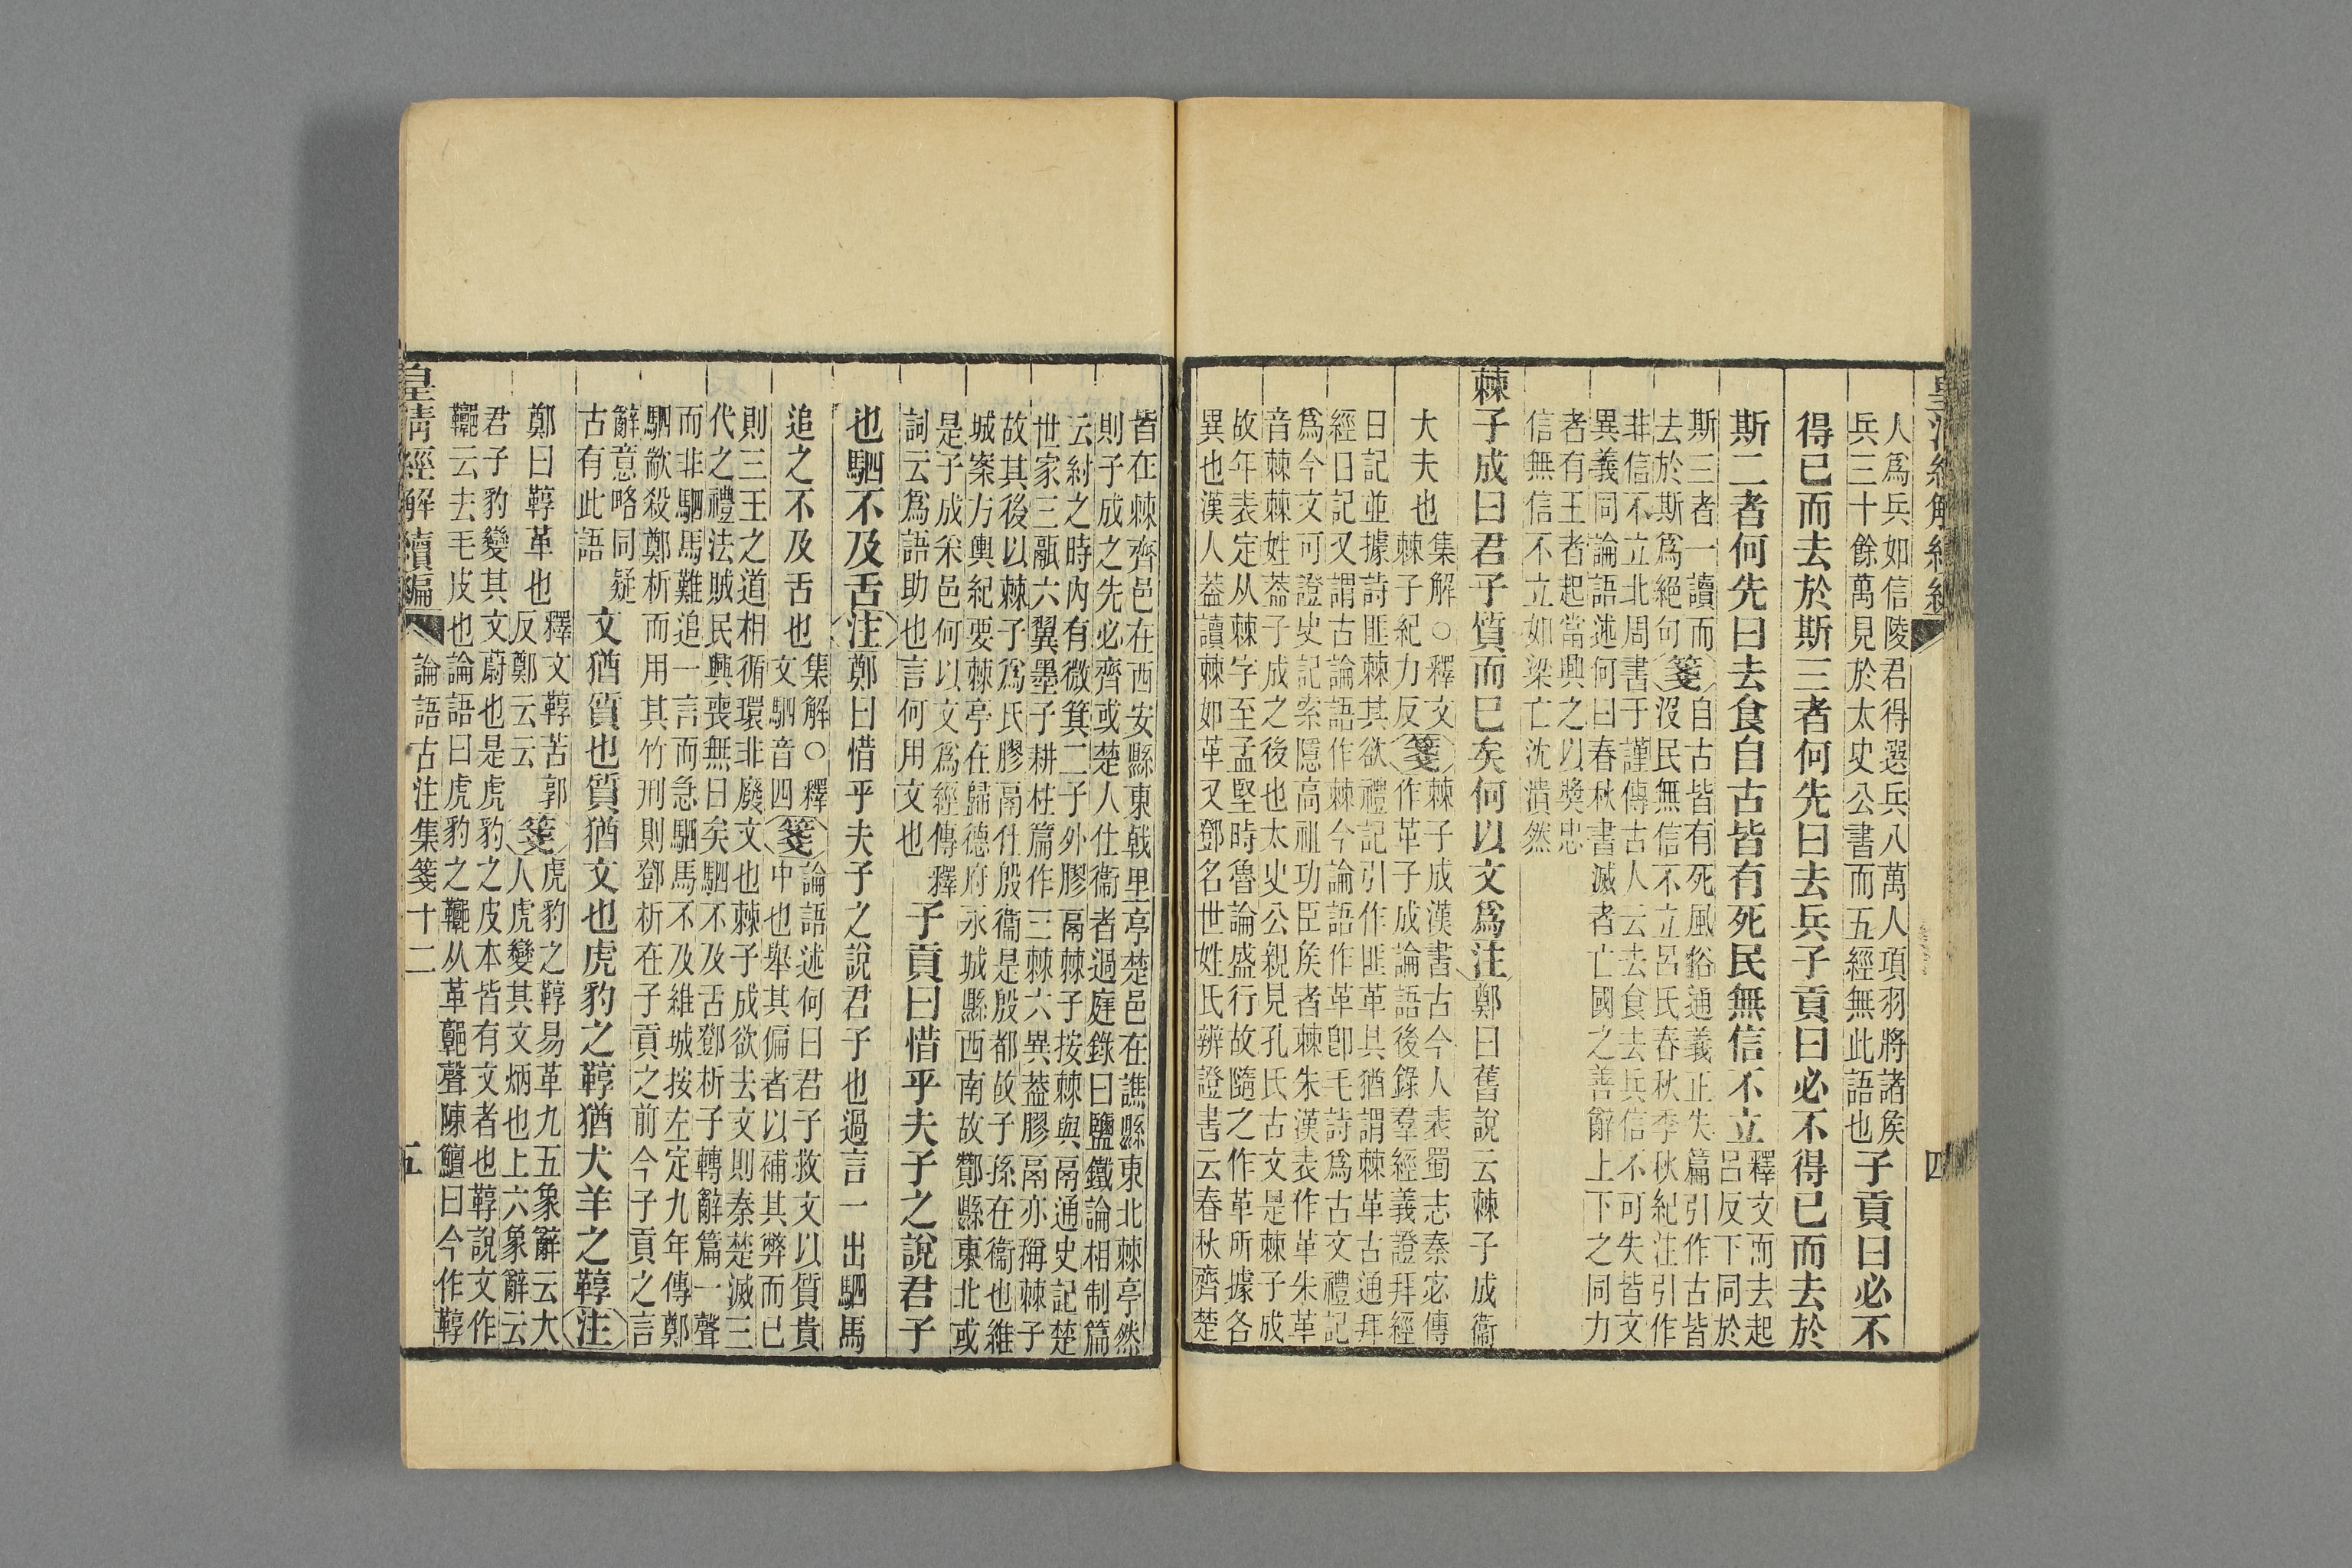 人爲兵如信陵君得選兵八萬人項羽將諸矦
兵三十餘萬見於太史公書而五經無此語也
子貢曰必不
得已而去於斯三者何先曰去兵子貢曰必不得已而去於
斯二者何先曰去食自古皆有死民無信不立
釋文而去起
呂反下同於
斯三者一讀而
去於斯爲絕句
箋
自古皆有死風俗通義正失篇引作古皆
沒民無信不立呂氏春秋季秋紀注引作
非信不立北周書于謹傳古人云去食去兵信不可失皆文
異義同論語述何曰春秋書滅者亡國之善辭上下之同力
者有王者起當興之以奬忠
信無信不立如梁亡沈潰然
棘子成曰君子質而已矣何以文爲注鄭曰舊說云棘子成衞
大夫也
集解○釋文
棘子紀力反
箋
棘子成漢書古今人表蜀志秦宓傳
作革子成論語後錄羣經義證拜經
日記並據詩匪棘其欲禮記引作匪革其猶謂棘革古通拜
經日記又謂古論語作棘今論語作革卽毛詩爲古文禮記
爲今文可證史記索隱高祖功臣矦者棘朱漢表作革朱革
音棘棘姓葢子成之後也太史公親見孔氏古文是棘子成
故年表定从棘字至孟堅時魯論盛行故隨之作革所據各
異也漢人葢讀棘如革又鄧名世姓氏辨證書云春秋齊楚
四
皆在棘齊邑在西安縣東戟里亭楚邑在譙縣東北棘亭然
則子成之先必齊或楚人仕衞者過庭錄曰鹽鐵論相制篇
云紂之時內有微箕二子外膠鬲棘子按棘與鬲通史記楚
世家三翮六翼墨子耕柱篇作三棘六異葢膠鬲亦稱棘子
故其後以棘子爲氏膠鬲仕殷衞是殷都故子孫在衞也維
城案方輿紀要棘亭在歸德府永城縣西南故酇縣東北或
是子成采邑何以文爲經傳釋
詞云爲語助也言何用文也
子貢曰惜乎夫子之說君子
也駟不及舌注鄭曰惜乎夫子之說君子也過言一出駟馬
追之不及舌也
集解○釋
文駟音四
箋
論語述何曰君子救文以質貴
中也舉其偏者以補其弊而已
則三王之道相循環非廢文也棘子成欲去文則秦楚滅三
代之禮法賊民興喪無日矣駟不及舌鄧析子轉辭篇一聲
而非駟馬難追一言而急駟馬不及維城按左定九年傳鄭
駟歂殺鄭析而用其竹刑則鄧析在子貢之前今子貢之言
辭意略同疑
古有此語
文猶質也質猶文也虎豹之鞟猶犬羊之鞟注
鄭曰鞟革也
釋文鞟苦郭
反鄭云云
箋
虎豹之鞟易革九五象辭云大
人虎變其文炳也上六象辭云
君子豹變其文蔚也是虎豹之皮本皆有文者也鞟說文作
鞹云去毛皮也論語曰虎豹之鞹从革郭聲陳鱣曰今作鞟
皇淸經解續編
論語古注集箋十二
五